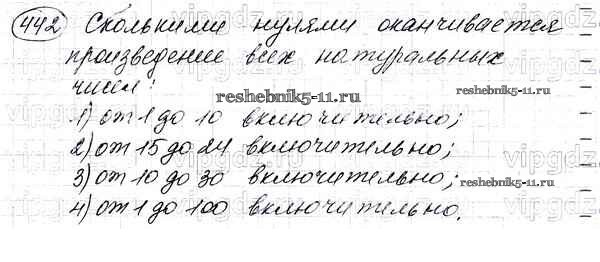 442 Сколькими нулями оканчивается
произведение всех натуральных
чисел:
1) от 1 до 10 включительно;
2) от 15 до 24 включительно;
3) от 10 до 30 включительно;
4) от 1 до 100 включительно.
reshebnik5-11.ru
reshebnik5-11.ru